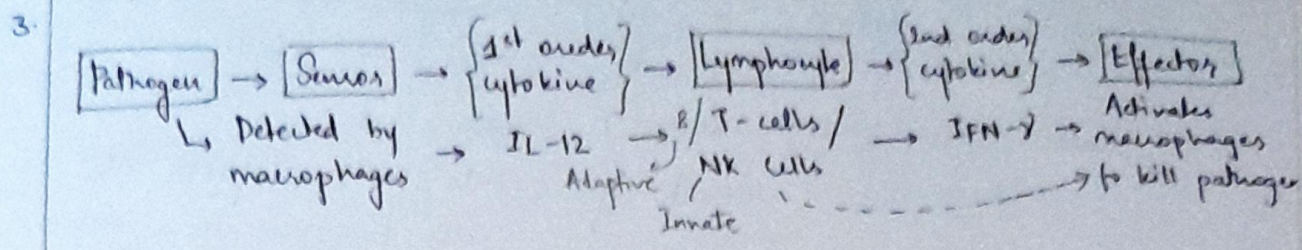 3.
Pathogen → Sensor → {1st order cytokine} → Lymphocyte → {2nd order cytokine} → Effector
↳ Detected by macrophages → IL-12 → / T-cells / NK cells → IFN-γ → Activates macrophages to kill pathogen
Adaptive
Innate